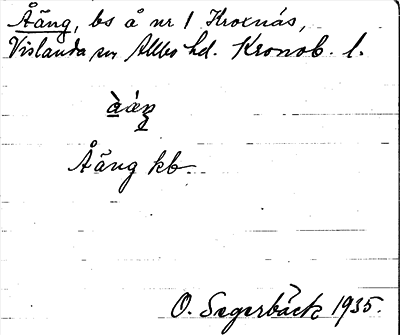 Åäng, bs å nr 1 Kroxnäs,
Vislanda sn Allbo hd. Kronob. l.
Åäng kb.
O. Segerbäck 1935.